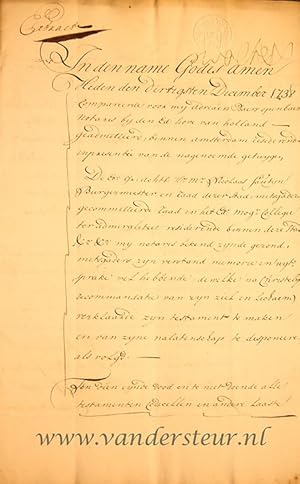 Extract
In den name Godes amen
Heden den dertigsten December 1738
Compareerde voor mij Adriaen Baars openbaar
notaris bij den Ed. hove van holland
geadmitteert, binnen amsterdam
in presentie van de nagenoemde getuygen,
De Ed. gr. achtb. Hr. Mr. Nicolaas
Burgermeester en Raad deser stad, mitsgaders
gecommitteerde raad in het Ed. Mog. Collegie
ter admiraliteit residerende binnen dese stad
&c. &c. mij notaris bekend zijnde gesond,
mitsgaders zijn verstand memorie en uyt-
sprake wel hebbende, dewelke na Christelijke
recommandatie van zijn ziel en lichaem
verklaarde zijn testament te maken
en van zijne nalatenschap te disponeren
als volgt.
Ten dien eynde dood en te niet doende alle
testamenten Codicillen en andere laaste
www.vandersteur.nl